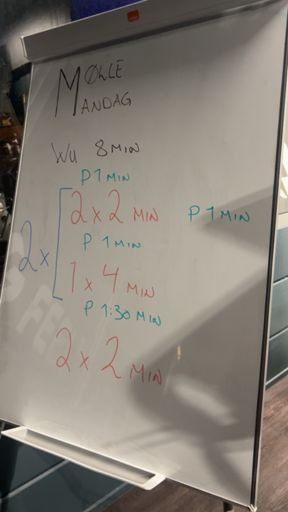 MØLLE
MANDAG
WU 8 MIN
P 1 MIN
2 x 2 MIN P 1 MIN
P 1 MIN
2 x
1 x 4 MIN
P 1:30 MIN
2 x 2 MIN